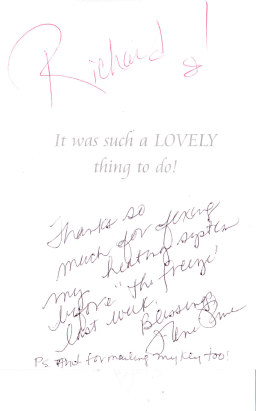 Richard!
It was such a LOVELY
thing to do!
Thanks so
much for fixing
my heating system
before "the freeze'
last week.
Blessings
P.S. for mailing my key too!